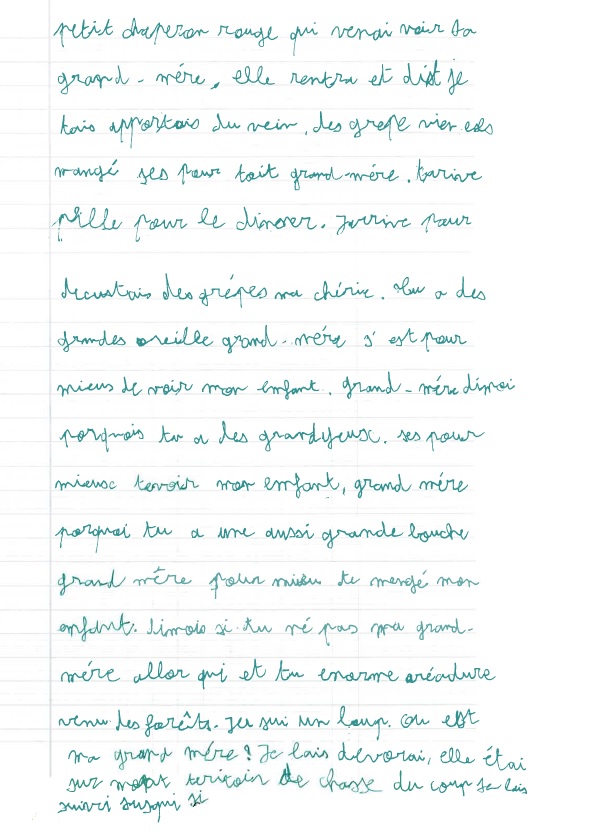 petit chaperon rouge qui venai voir sa
grand-mére, elle rentra et dist je
tais apportais du vein, des grepe vier eds
mangé ses pour toit grand-mére. tarive
pille pour le dinner. Jarrive pour
decustais des grépes ma chérie. tu a des
grandes oreille grand-mére s'est pour
mieus de voir mon enfant. grand-mére dimoi
porquois tu a des grandyeux. ses pour
mieusc tevoir mon enfant, grand mére
porquoi tu a une aussi grande bouche
grand mére pour mieu te mengé mon
enfant. dimois si tu né pas ma grand-
mére allor qui et tu enorme aréadure
venu des forêts. Jeu sui un loup. Ou est
ma grand mére? Je lais devorai, elle étai
sur mont teritoir de chasse du coup Je lais
suivi susqui si